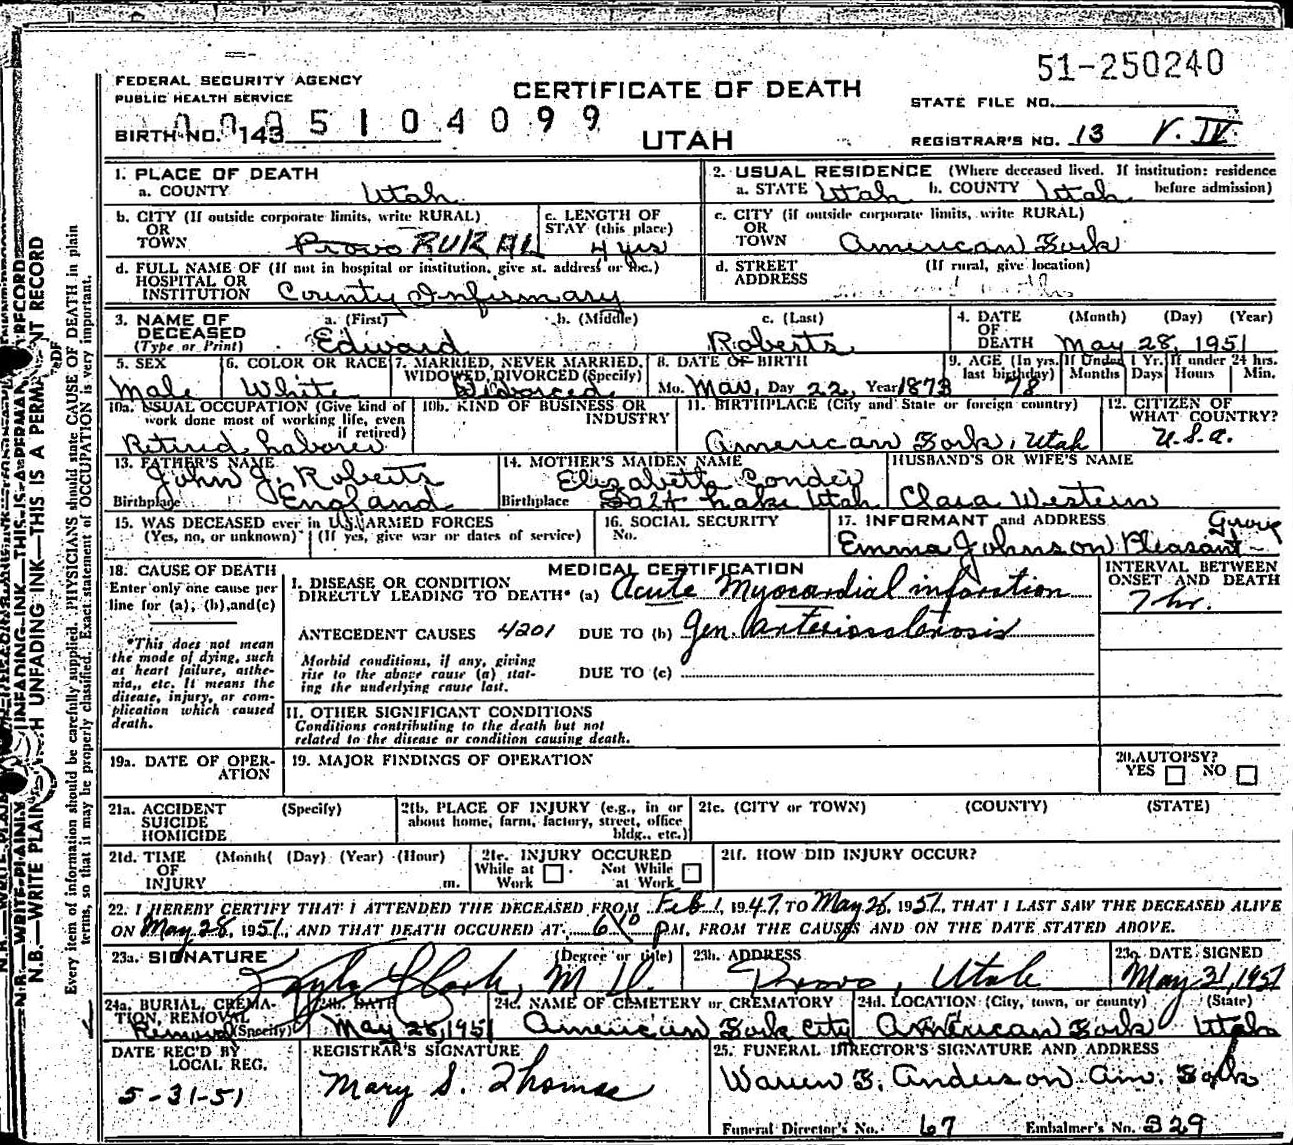 51-250240
FEDERAL SECURITY AGENCY
PUBLIC HEALTH SERVICE
CERTIFICATE OF DEATH
STATE FILE NO.
BIRTH NO. 143 5104099
UTAH
REGISTRAR'S NO. 13 V. IV
1. PLACE OF DEATH
a. COUNTY Utah
2. USUAL RESIDENCE (Where deceased lived. If institution: residence before admission)
a. STATE Utah b. COUNTY Utah
b. CITY (If outside corporate limits, write RURAL)
OR
TOWN Provo RURAL
c. LENGTH OF
STAY (this place)
4 yrs
c. CITY (if outside corporate limits, write RURAL)
OR
TOWN American Fork
d. FULL NAME OF (If not in hospital or institution, give st. address or loc.)
HOSPITAL OR
INSTITUTION County Infirmary
d. STREET (If rural, give location)
ADDRESS
3. NAME OF DECEASED
(Type or Print)
a. (First) b. (Middle) c. (Last)
Edward Roberts
4. DATE OF DEATH (Month) (Day) (Year)
May 28, 1951
5. SEX
Male
6. COLOR OR RACE
White
7. MARRIED, NEVER MARRIED,
WIDOWED, DIVORCED (Specify)
Divorced
8. DATE OF BIRTH
Mo. Mar, Day 22, Year 1873
9. AGE (In yrs. last birthday) 78
If Under 1 Yr. Months Days
If under 24 hrs. Hours Min.
10a. USUAL OCCUPATION (Give kind of
work done most of working life, even
if retired)
Retired Laborer
10b. KIND OF BUSINESS OR
INDUSTRY
11. BIRTHPLACE (City and State or foreign country)
American Fork, Utah
12. CITIZEN OF
WHAT COUNTRY?
U.S.A.
13. FATHER'S NAME
John J. Roberts
Birthplace England
14. MOTHER'S MAIDEN NAME
Elizabeth Conder
Birthplace Salt Lake Utah
HUSBAND'S OR WIFE'S NAME
Clara Western
15. WAS DECEASED ever in U.S. ARMED FORCES
(Yes, no, or unknown) (If yes, give war or dates of service)
16. SOCIAL SECURITY
No.
17. INFORMANT and ADDRESS
Emma Johnson Pleasant
18. CAUSE OF DEATH
Enter only one cause per
line for (a), (b), and (c)
*This does not mean
the mode of dying, such
as heart failure, asthe-
nia, etc. It means the
disease, injury, or com-
plication which caused
death.
MEDICAL CERTIFICATION
I. DISEASE OR CONDITION
DIRECTLY LEADING TO DEATH* (a) Acute Myocardial infarction
ANTECEDENT CAUSES 4201 DUE TO (b) Gen. Arteriosclerosis
Morbid conditions, if any, giving
rise to the above cause (a) stat-
ing the underlying cause last.
DUE TO (c)
INTERVAL BETWEEN
ONSET AND DEATH
7 hr.
II. OTHER SIGNIFICANT CONDITIONS
Conditions contributing to the death but not
related to the disease or condition causing death.
19a. DATE OF OPER-
ATION
19. MAJOR FINDINGS OF OPERATION
20. AUTOPSY?
YES NO
21a. ACCIDENT (Specify)
SUICIDE
HOMICIDE
21b. PLACE OF INJURY (e.g., in or
about home, farm, factory, street, office
bldg., etc.)
21c. (CITY or TOWN) (COUNTY) (STATE)
21d. TIME (Month) (Day) (Year) (Hour)
OF
INJURY m.
21e. INJURY OCCURED
While at Work Not While at Work
21f. HOW DID INJURY OCCUR?
22. I HEREBY CERTIFY THAT I ATTENDED THE DECEASED FROM Feb 1, 1947, TO May 28, 1951, THAT I LAST SAW THE DECEASED ALIVE
ON May 28, 1951, AND THAT DEATH OCCURED AT 6:10 P.M. FROM THE CAUSES AND ON THE DATE STATED ABOVE.
23a. SIGNATURE (Degree or title)
Clark, M D.
23b. ADDRESS
Provo, Utah
23c. DATE SIGNED
May 31, 1951
24a. BURIAL, CREMA-
TION, REMOVAL
Removal (Specify)
24b. DATE
May 28, 1951
24c. NAME OF CEMETERY or CREMATORY
American Fork City
24d. LOCATION (City, town, or county) (State)
American Fork Utah
DATE REC'D BY
LOCAL REG.
5-31-51
REGISTRAR'S SIGNATURE
Mary S. Thomas
25. FUNERAL DIRECTOR'S SIGNATURE AND ADDRESS
Warren F. Anderson Am. Fork
Funeral Director's No. 67 Embalmer's No. 329
N.B.—WRITE PLAINLY WITH UNFADING INK—THIS IS A PERMANENT RECORD
Every item of information should be carefully supplied. PHYSICIANS should state CAUSE OF DEATH in plain
terms, so that it may be properly classified. Exact statement of OCCUPATION is very important.